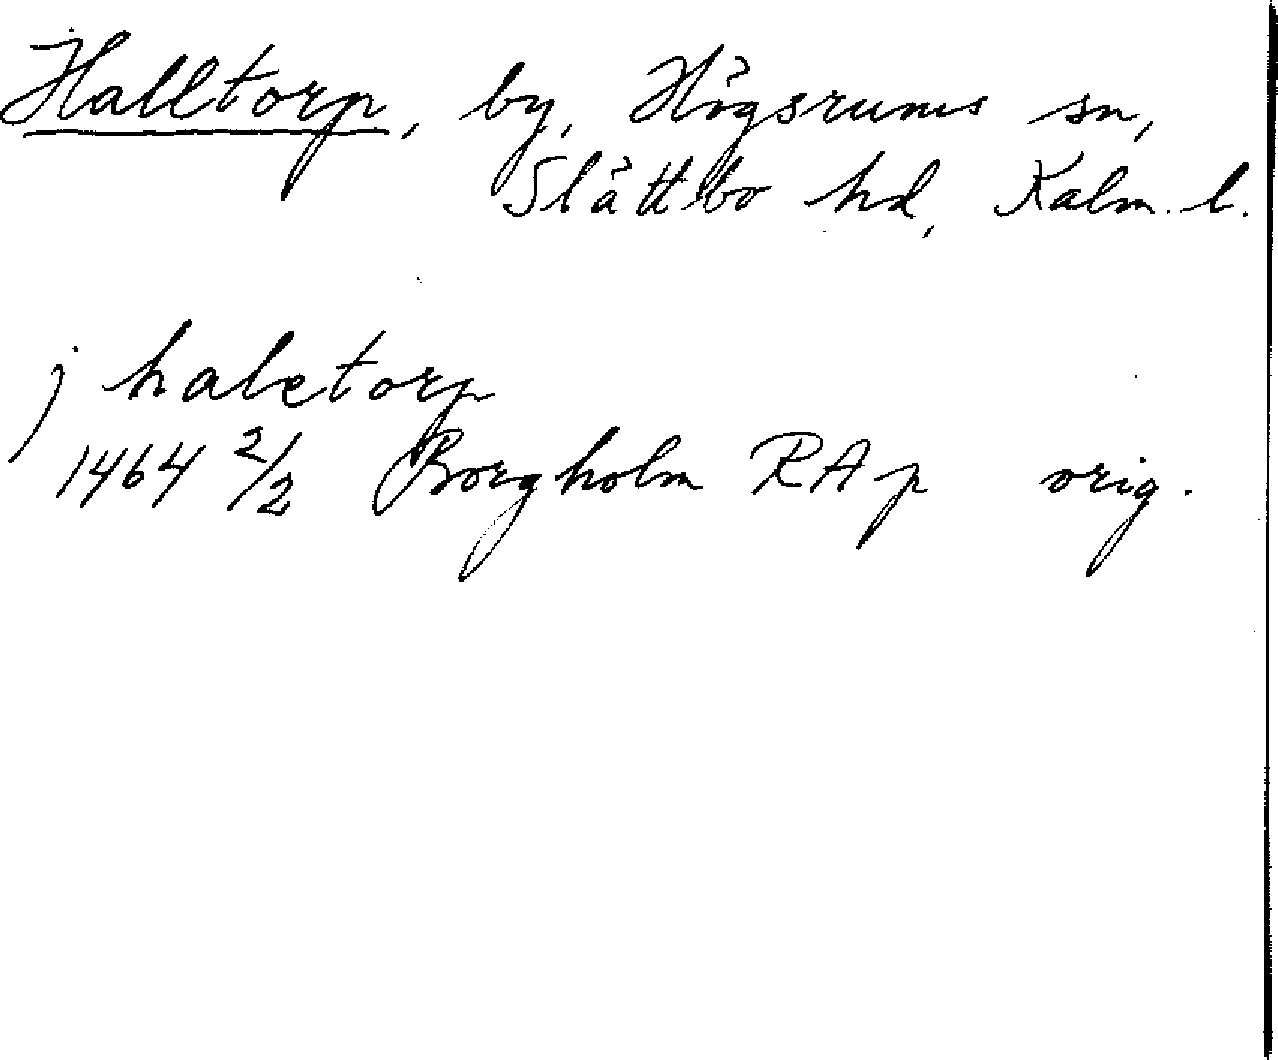 Halltorp, by, Högsrums sn,
Slättbo hd, Kalm. l.
j haletorp
1464 2/2 Borgholm RAp orig.